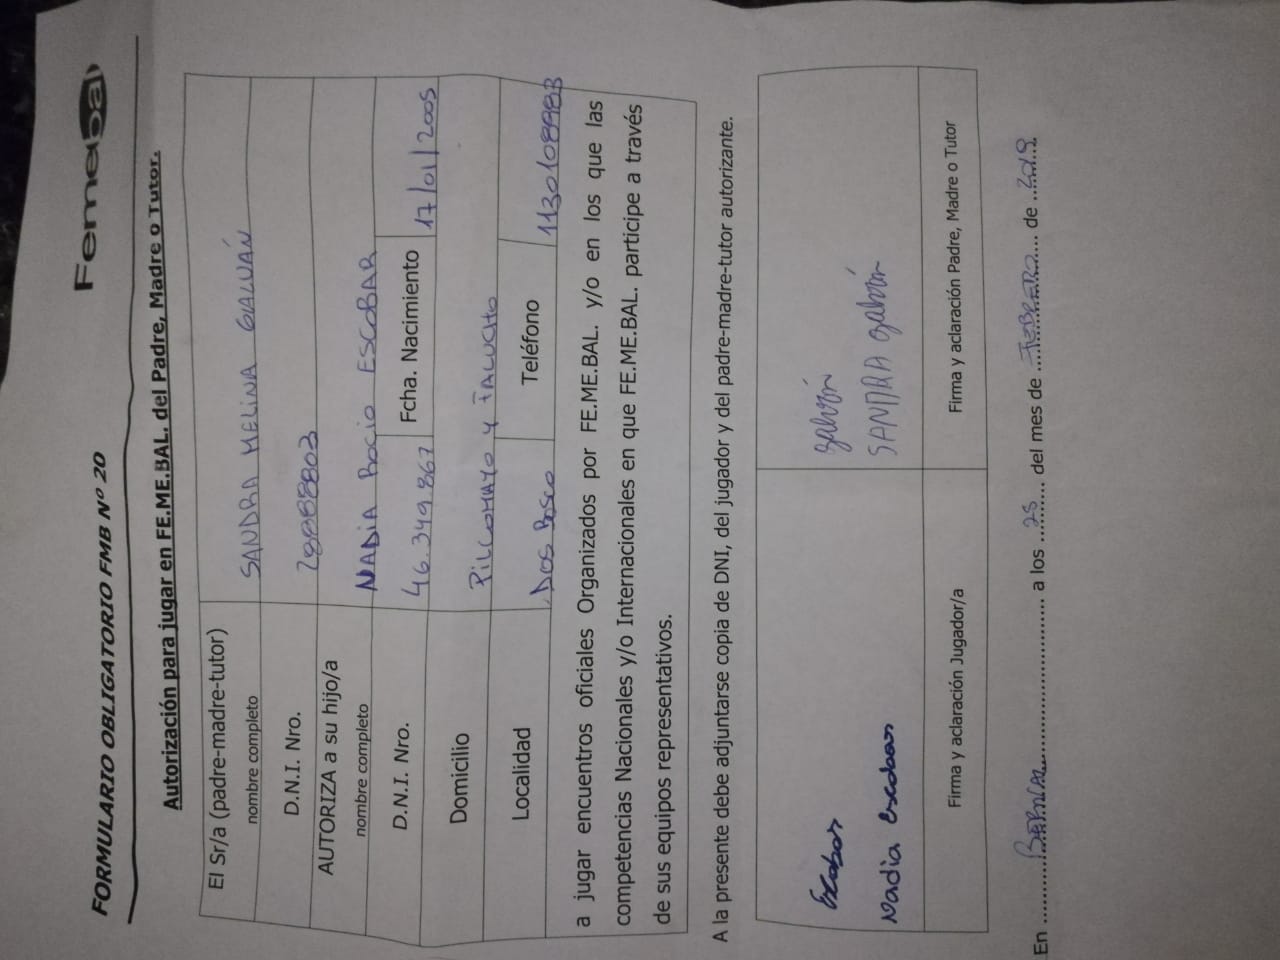 Femebal
FORMULARIO OBLIGATORIO FMB Nº 20
Autorización para jugar en FE.ME.BAL. del Padre, Madre o Tutor.
El Sr/a (padre-madre-tutor)
nombre completo
SANDRA MELINA GALVÁN
D.N.I. Nro.
28888803
AUTORIZA a su hijo/a
nombre completo
NADIA ROCIO ESCOBAR
D.N.I. Nro.
46.349.867
Fcha. Nacimiento
17/01/2005
Domicilio
PILCOMAYO y FALUCHO
Localidad
DOS BOSCO
Teléfono
1130108983
a jugar encuentros oficiales Organizados por FE.ME.BAL. y/o en los que las
competencias Nacionales y/o Internacionales en que FE.ME.BAL. participe a través
de sus equipos representativos.
A la presente debe adjuntarse copia de DNI, del jugador y del padre-madre-tutor autorizante.
Escobar
Nadia Escobar
Firma y aclaración Jugador/a
galván
SANDRA galván
Firma y aclaración Padre, Madre o Tutor
En BERNAL a los 25 del mes de FEBRERO de 2019